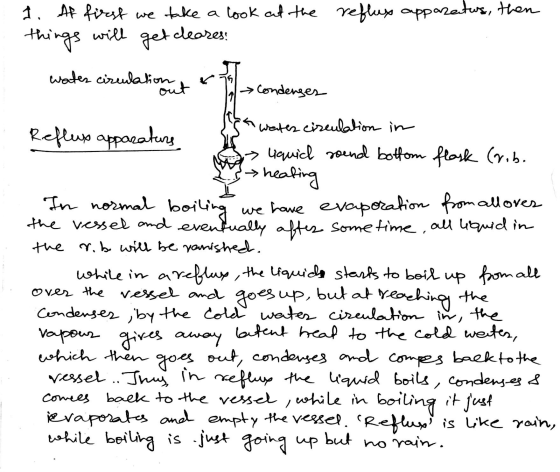 1. At first we take a look at the reflux apparatus, then
things will get clearer:
water circulation out
→ Condenser
Reflux apparatus
water circulation in
→ liquid round bottom flask (r.b.
→ heating
In normal boiling we have evaporation from all over
the vessel and eventually after sometime, all liquid in
the r.b will be vanished.
while in a reflux, the liquids starts to boil up from all
over the vessel and goes up, but at reaching the
Condenser, by the cold water circulation in, the
vapour gives away latent heat to the cold water,
which then goes out, condenses and comes back to the
vessel.. Thus in reflux the liquid boils, condenses &
comes back to the vessel, while in boiling it just
evaporates and empty the vessel. 'Reflux' is like rain,
while boiling is just going up but no rain.